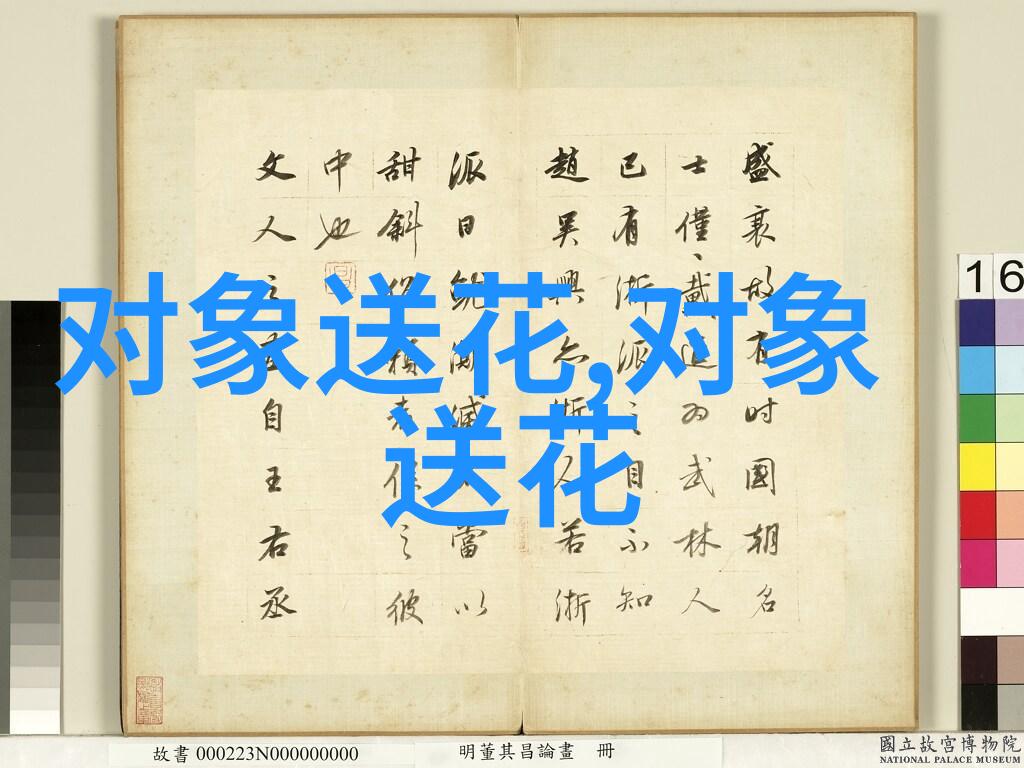 对象送花,对象
送花
盛衰故有時國朝名
士僅戴進為武林人
已有浙派之目不知
趙吳興亦浙人若浙
派日就澌滅不當以
甜斜俗賴者係之彼
中也
文人之畫自王右丞
16
故書 000223N000000000
明董其昌論畫 冊
國立故宮博物院
NATIONAL PALACE MUSEUM